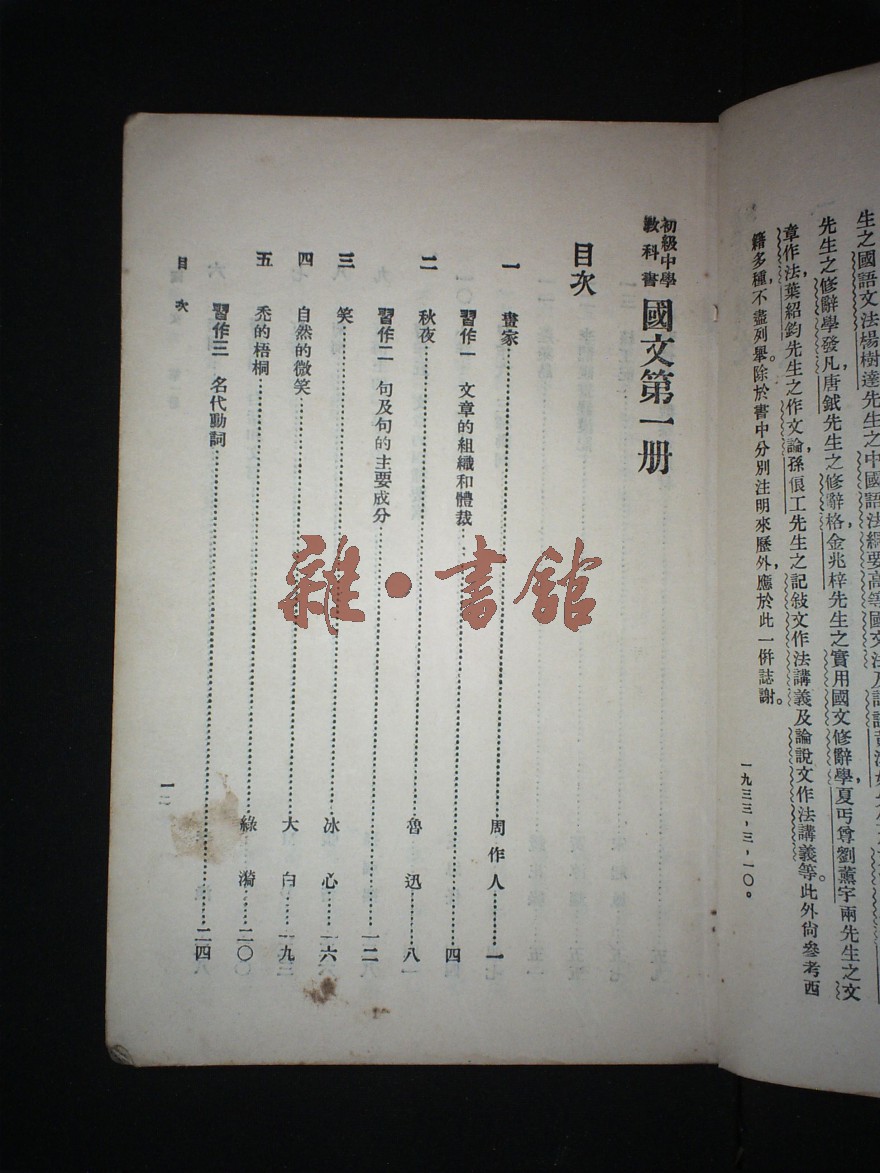 生之國語文法楊樹達先生之中國語法綱要高等國文法及
先生之修辭學發凡，唐鉞先生之修辭格，金兆梓先生之實用國文修辭學，夏丏尊劉薰宇兩先生之文
章作法，葉紹鈞先生之作文論，孫俍工先生之記敍文作法講義及論說文作法講義等。此外尙參考西
籍多種，不盡列舉。除於書中分別注明來歷外，應於此一併誌謝。
一九三三，三，一〇。
初級中學
教科書
國文第一册
目次
一 畫家……周作人……一
習作一 文章的組織和體裁……四
二 秋夜……魯迅……八
習作二 句及句的主要成分……一二
三 笑……冰心……一六
四 自然的微笑……大白……一九
五 禿的梧桐……綠漪……二〇
習作三 名代動詞……二四
目次
一
雜·書館